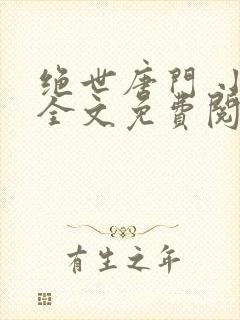 绝世唐門小
全文免費閱
有生之年